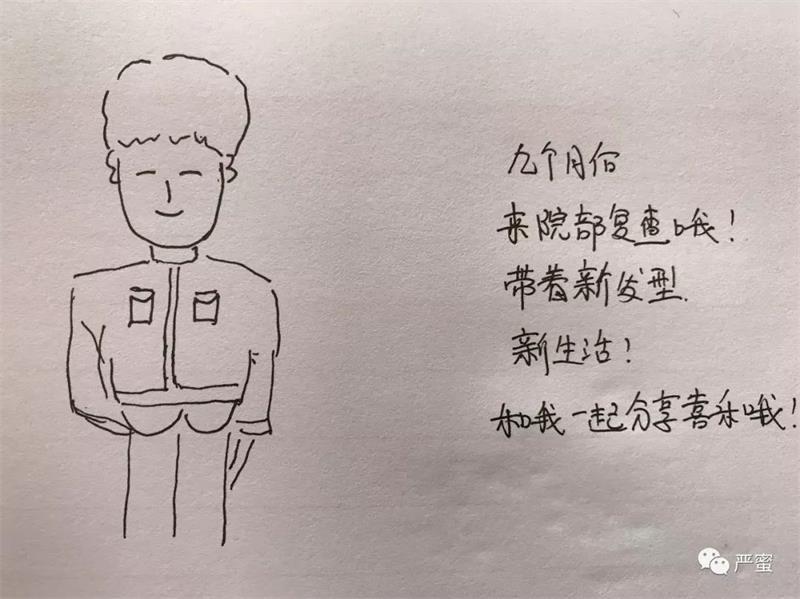 九个月份
来院部复查哦!
带着新发型
新生活!
和我一起分享喜乐哦!
严蜜